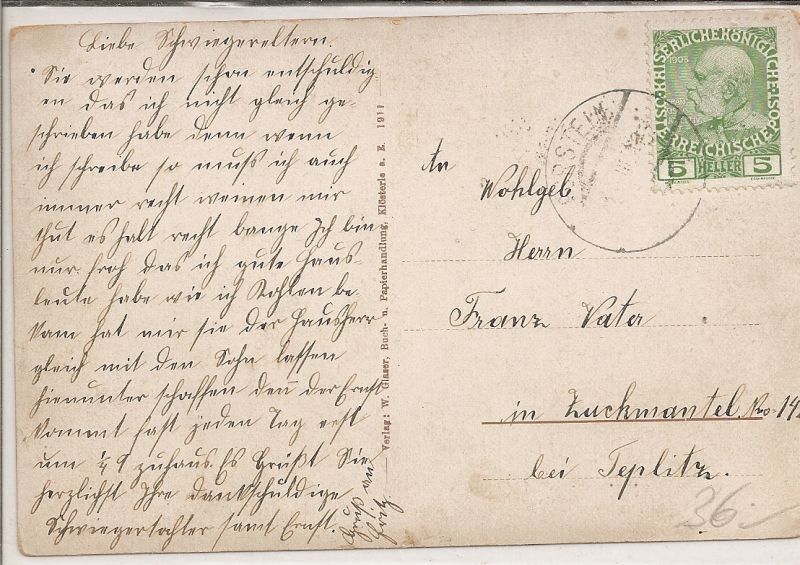 Liebe Schwiegereltern.
Sie werden schon entschuldig
en das ich nicht gleich ge-
schrieben habe denn wenn
ich schreibe so muss ich auch
immer recht weinen mir
thut es halt recht bange Ich bin
nur froh das ich gute Haus-
leute habe wie ich Kohlen be-
kam hat mir sie der Hausherr
gleich mit den Sohn lassen
hinunter schaffen den̄ der Ernst
kommt fast jeden Tag erst
um ½ 9 zuhaus. Es Grüßt Sie
herzlichst Ihre dankschuldige
Schwiegertochter samt Ernst.
Gruß an
Fritz
Verlag: W. Glaser, Buch- u. Papierhandlung, Klösterle a. E. 1911
An
Wohlgeb
Herrn
Franz Vater
in Zuckmantel No 14
bei Teplitz.
36.-
KAISERLICHEKÖNIGLICHE
ÖSTERREICHISCHE
1908
5 HELLER 5